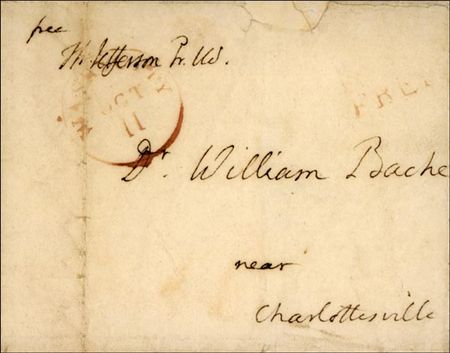 free
Th: Jefferson Pr. US.
OCT
11
FREE
Dr. William Bache
near
Charlottesville